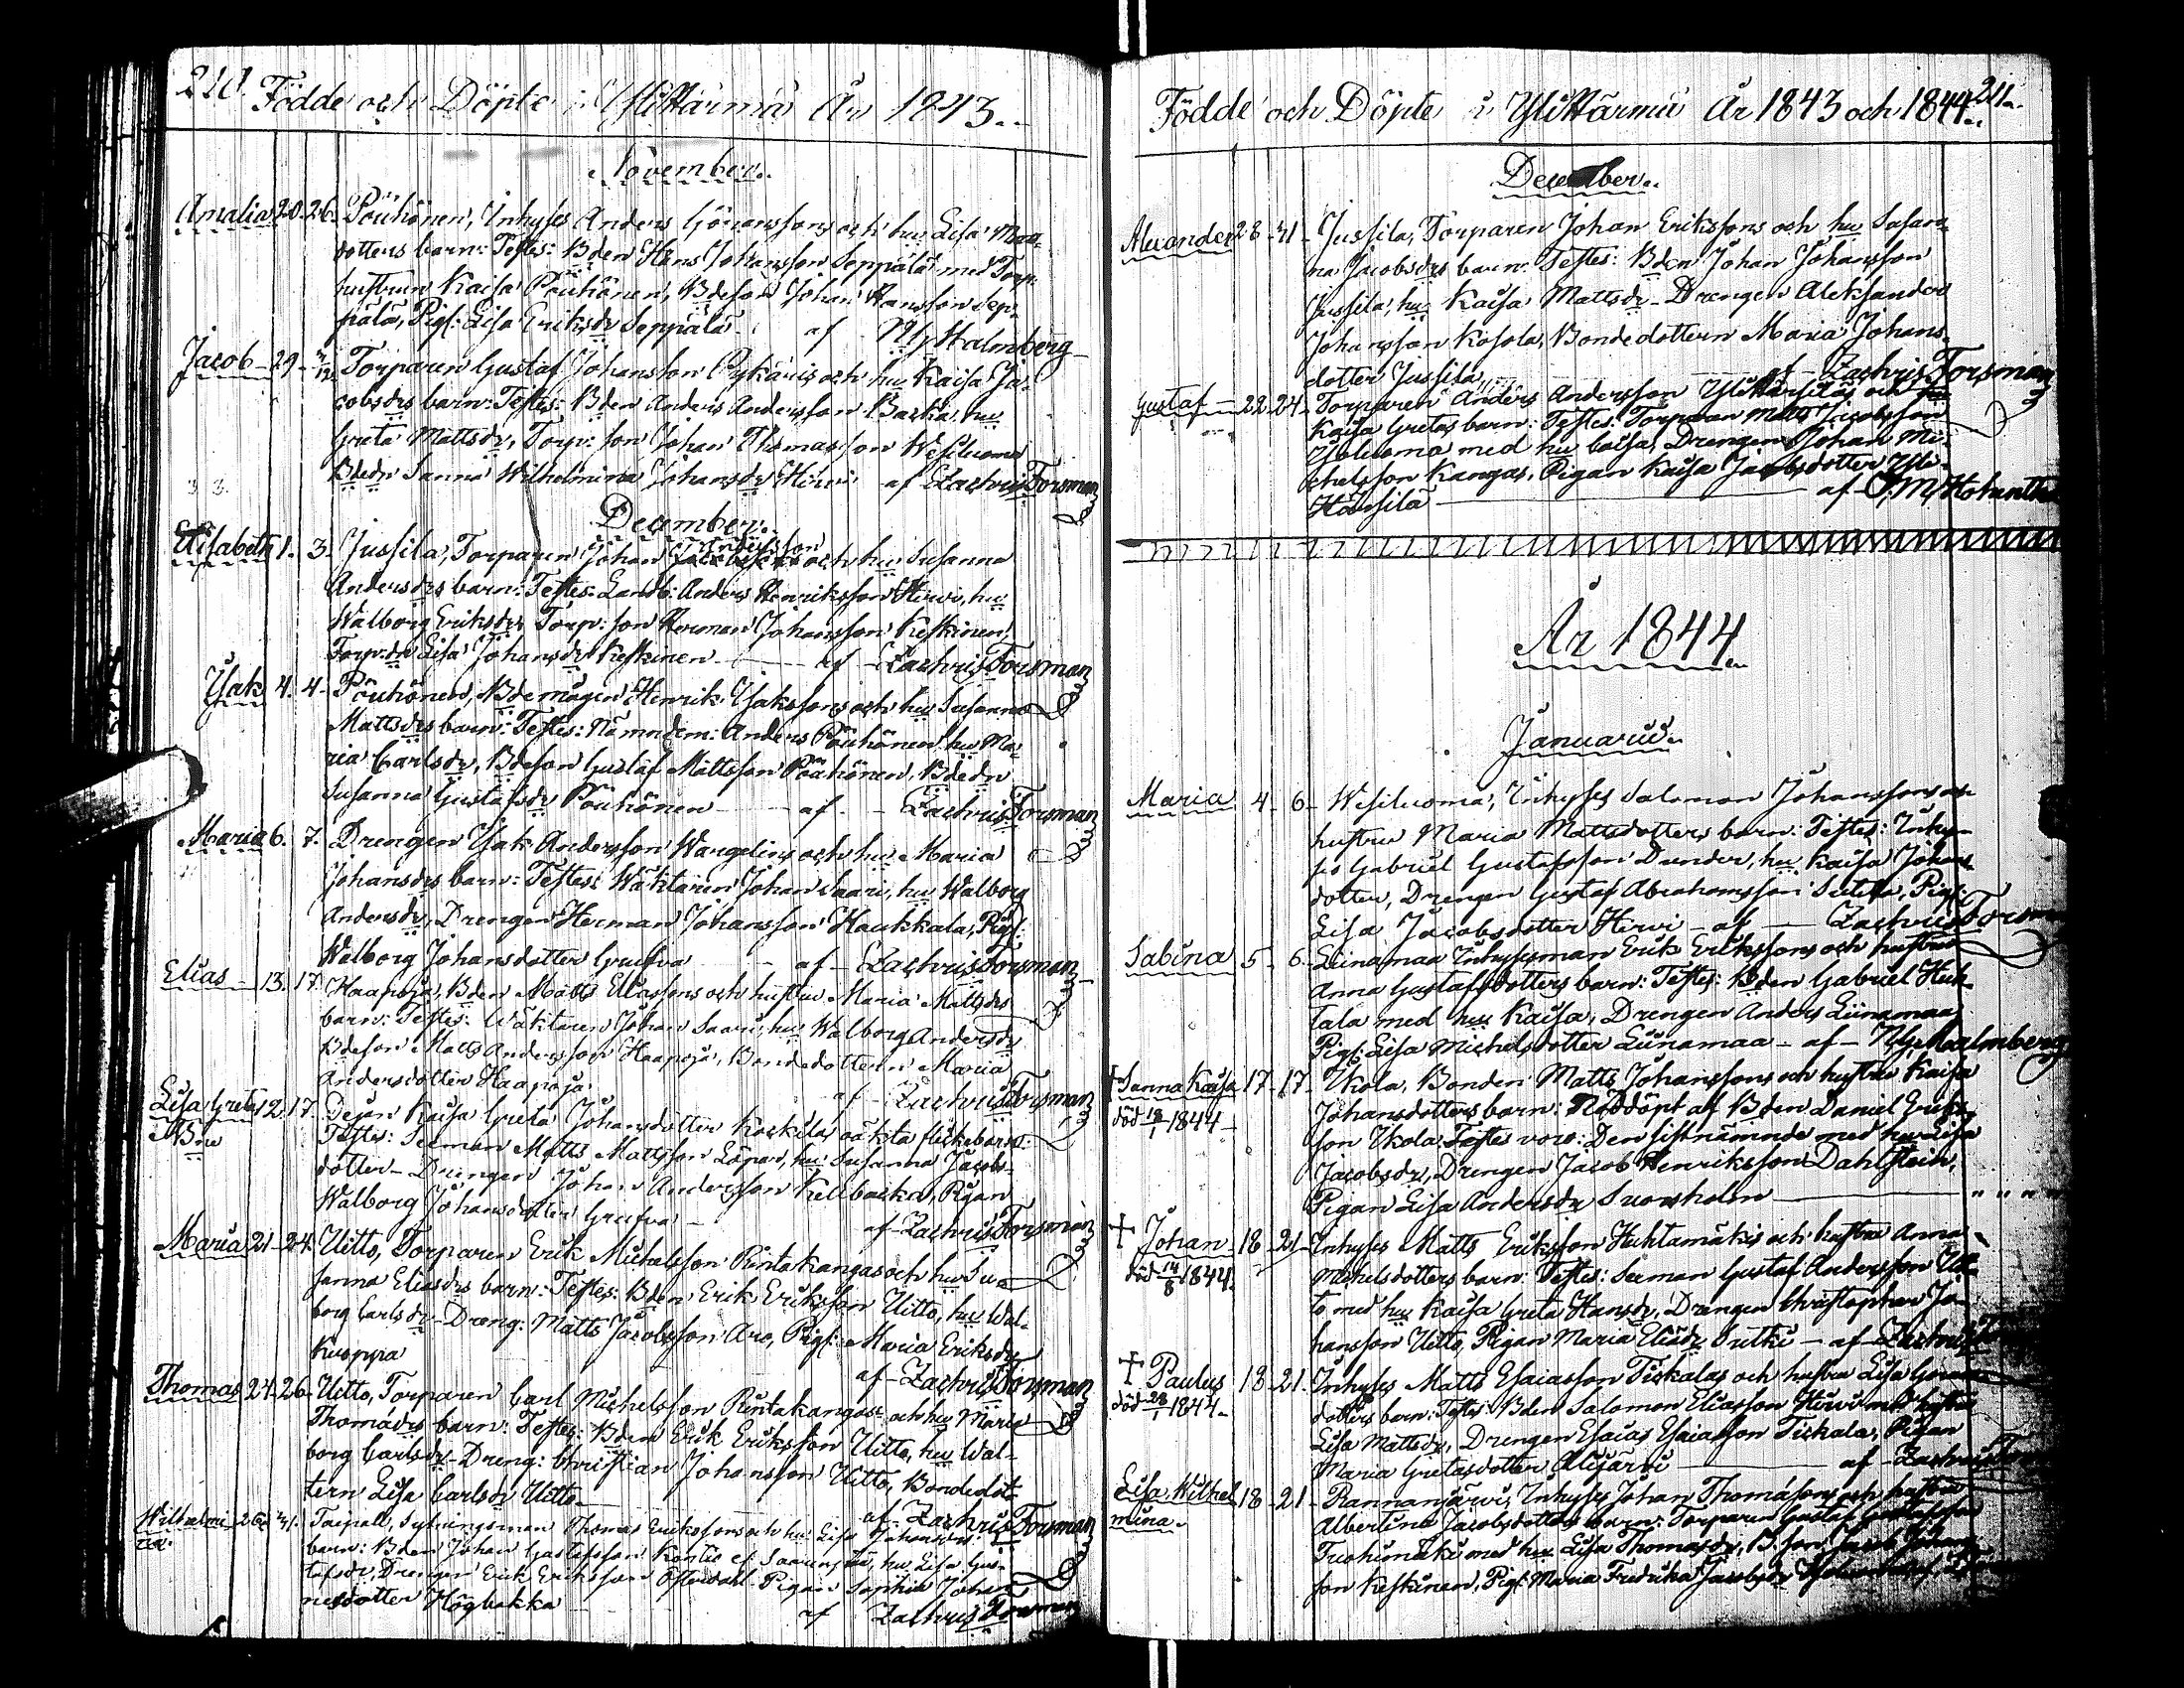 210. Födde och Döpte i Ylihärmä År 1843.
November.
Amalia 20. 26. Pöuhönen, Inhyses Anders Göranssons och hu Lisa Matts-
dotters barn: Testes: Bden Hans Johansson Seppälä med Torp:
hustrun Kaisa Pöuhönen, Bdeson Johan Hansson Sep-
pälä, Pig: Lisa Eriksdr Seppälä af Malmberg
Jacob 29 Torparen Gustaf Johansson Pykäris och hu Kaisa Ja-
cobsdrs barn: Testes: Bden Anders Andersson Backa, hu
Greta Mattsdr, Torp: son Johan Thomasson Wesiluoma
Bdedr Sanna Wilhelmina Johansdr Hirvi af Zachris Forsman
December.
Elisabeth 1. 3. Jussila, Torparen Johan Andersson och hu Susanna
Andersdrs barn: Testes: Landb: Anders Henriksson Hirvi, hu
Walborg Eriksdr Torp: son Herman Johansson Keskinen,
Torp: dr Lisa Johansdr Keskinen af Zachris Forsman
Isak 4. 4. Pöuhönen, Bdemågen Henrik Isakssons och hu Susanna
Mattsdrs barn: Testes: Nämndem: Anders Pöuhönen hu Ma-
ria Carlsdr, Bdeson Gustaf Mattsson Pöuhönen, Bdedr
Susanna Gustafsdr Pöuhönen af Zachris Forsman
Maria 6. 7. Drengen Isak Andersson Wangelins och hu Maria
Johansdrs barn: Testes: Wäktaren Johan Saari, hu Walborg
Andersdr, Drengen Herman Johansson Haukkala, Pig:
Walborg Johansdotter af Zachris Forsman
Elias 13. 17. Haapoja, Bden Matts Eliassons och hustru Maria Mattsdrs
barn: Testes: Wäktaren Johan Saari, hu Walborg Andersdr
Bdeson Matts Andersson Haapoja, Bondedottern Maria
Andersdotter Haapoja af Zachris Forsman
Lisa Greta 12. 17. Pejan Kaisa Greta Johansdotter Koskelas oäkta flickebarn:
Testes: Seeman Matts Mattsson Löpar, hu Susanna Jacobs-
dotter - Drengen Johan Andersson Kellbacka, Pigan
Walborg Johansdotter af Zachris Forsman
Maria 21 24. Uitto, Torparen Erik Michelsson Rintakangas och hu Su-
sanna Eliasdrs barn: Testes: Bden Erik Eriksson Uitto, hu Wal-
borg Carlsdr - Dreng: Matts Jacobsson Aro, Pig: Maria Eriksdr
Kuoppa af Zachris Forsman
Thomas 24. 26. Uitto, Torparen Carl Michelsson Rintakangas och hu Maria
Thomädrs barn: Testes: Bden Erik Eriksson Uitto, hu Wal-
borg Carlsdr - Dreng: Christian Johansson Uitto, Bondedot-
tern Lisa Carlsdr Uitto af Zachris Forsman
Wilhelmi- 26. 31. Taipale, Sytningsman Thomas Erikssons och hu Lisa Johansdrs
na. barn: Bden Johan Gustafsson Kontio hu Lisa Gus-
tafsdr, Drengen Erik Eriksson Österdahl Pigan Sophia Johan-
nesdotter Högbakka af Zachris Forsman
Födde och Döpte i Ylihärmä År 1843 och 1844. 211.
December.
Alexander 28 - 31 - Jussila, Torparen Johan Erikssons och hu Susan-
na Jacobsdrs barn: Testes: Bden Johan Johansson
Jussila, hu Kaisa Mattsdr - Drengen Aleksander
Johansson Kosola, Bondedottern Maria Johans-
dotter Jussila, af Zachris Forsman
Gustaf - 22. 24. Torparen Anders Andersson och hu
Kaisa Gretas barn: Testes: Torparen Matts Jacobsson
med hu Caisa, Drengen Johan Mi-
chelsson Kangas, Pigan Kaisa Jacobsdotter Yli-
Hansila af
År 1844
Januarii
Maria 4 - 6 - Wesiluoma, Inhyses Salomon Johanssons och
hustru Maria Mattsdotters barn: Testes: Inhy-
ses Gabriel Gustafsson Dunder, hu Kaisa Johans-
dotter, Drengen Gustaf Abrahamsson Pig:
Lisa Jacobsdotter Hirvi - af Zachris Forsman
Sabina 5 - 6. Liinamaa Inhysesman Erik Erikssons och hustru
Anna Gustafsdotters barn: Testes: Bden Gabriel Huh-
tala med hu Kaisa, Drengen Anders Liinamaa
Pig: Lisa Michelsdotter Liinamaa - af - Malmberg
†Sanna Kaisa 17 - 17. Ekola, Bonden Matts Johanssons och hustru Kaisa
död 18/1 1844 Johansdotters barn: Nöddöpt af Bden Daniel Eriks-
son Ekola Testes voro: Den sistnämnde med hu Lisa
Jacobsdr, Drengen Jacob Henriksson Dahlsten,
Pigan Lisa Andersdr Svonholm
† Johan 18 - 21 - Inhyses Matts Eriksson Huhtamäkis och hustru Anna
död 14/8 1844. Michelsdotters barn: Testes: Seeman Gustaf Andersson Uit-
to med hu Kaisa Greta Hansdr, Drengen Christopher Jo-
hansson Uitto, Pigan Maria Eliädr - af Zachris
† Paulus 18 - 21. Inhyses Matts Esaiasson Tiskalas och hustru Lisa Göran-
död 28/1 1844. dotters barn: Testes: Bden Salomon Eliasson Hirvi med hustru
Lisa Mattsdr, Drengen Esaias Esaiasson Tiskala, Pigan
Maria Gretasdotter Alijärvi af Zachris
Lisa Wilhel- 18 - 21 - Rannanjärvi, Inhyses Johan Thomässons och hustru
mina. Albertina Jacobsdotters barn: Torparen Gustaf Gustafsson
med hu Lisa Thomasdr, B: son Jacob Johans-
son Keskinen, Pig: Maria Fredrika Jacobsdr